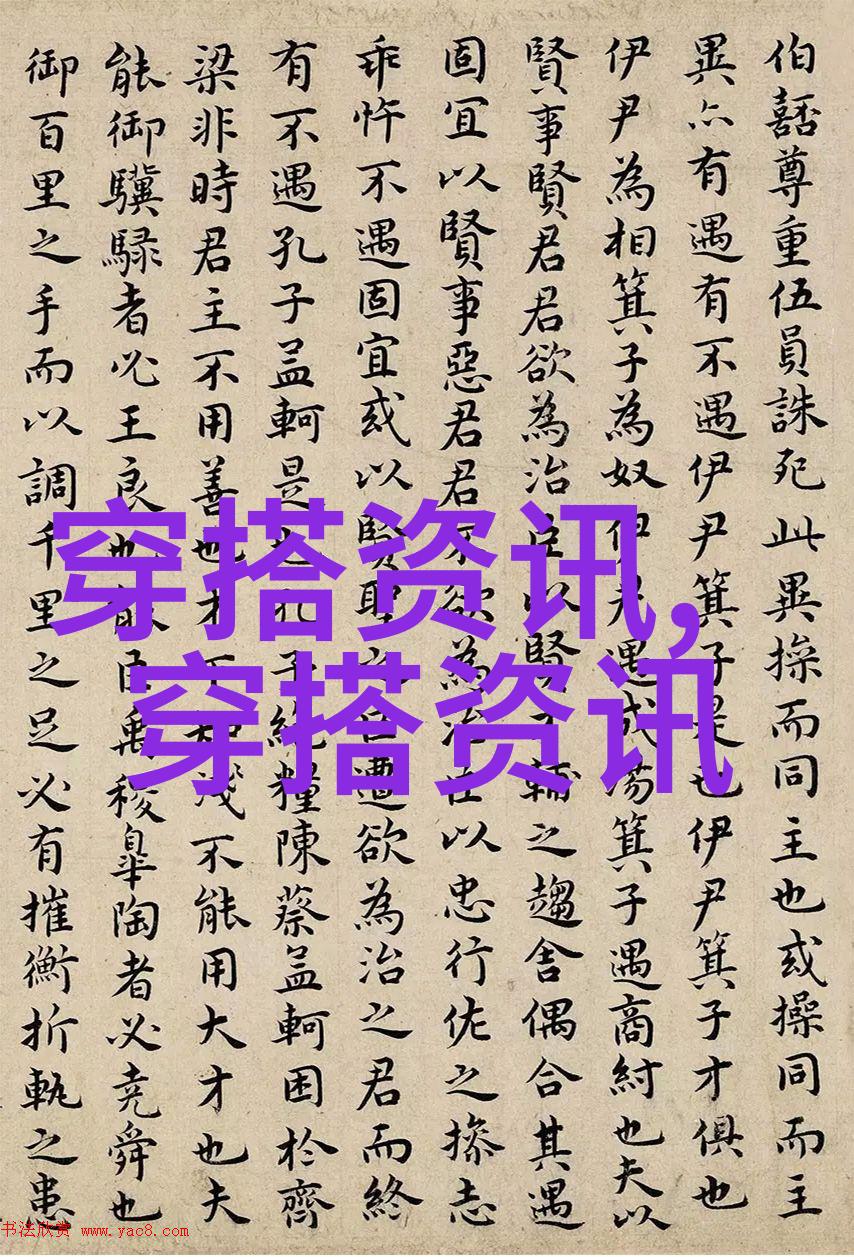 伯嚭尊重伍員誅死此異操而同主也或操同而主
異亦有遇有不遇伊尹箕子是也伊尹箕子才俱也
伊尹為相箕子為奴伊尹遇成湯箕子遇商紂也夫以
賢事賢君君欲為治臣以賢才輔之趨舍偶合其遇
固宜以賢事惡君君不欲為治臣以忠行佐之操志
乖忤不遇固宜或以賢聖之臣遭欲為治之君而終
有不遇孔子孟軻是也孔子絕糧陳蔡孟軻困於齊
梁非時君主不用善也才下知淺不能用大才也夫
能御驥騄者必王良也能臣禹稷皋陶者必堯舜也
御百里之手而以調千里之足必有摧衡折軛之患
穿搭资讯,
穿搭资讯
书法欣赏 www.yac8.com